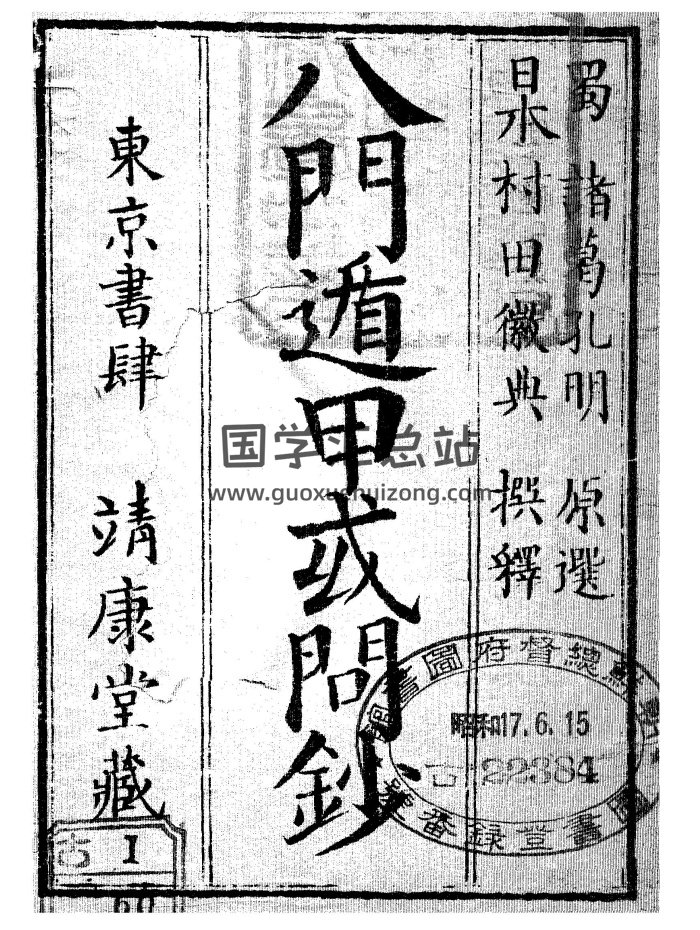 蜀 諸葛孔明 原選
日本 村田徽典 撰釋
八門遁甲或問鈔
東京書肆 靖康堂藏
国学汇总站
www.guoxuehuizong.com
總督府圖書
昭和17.6.15
古22384
圖書登録番號
古 I
60